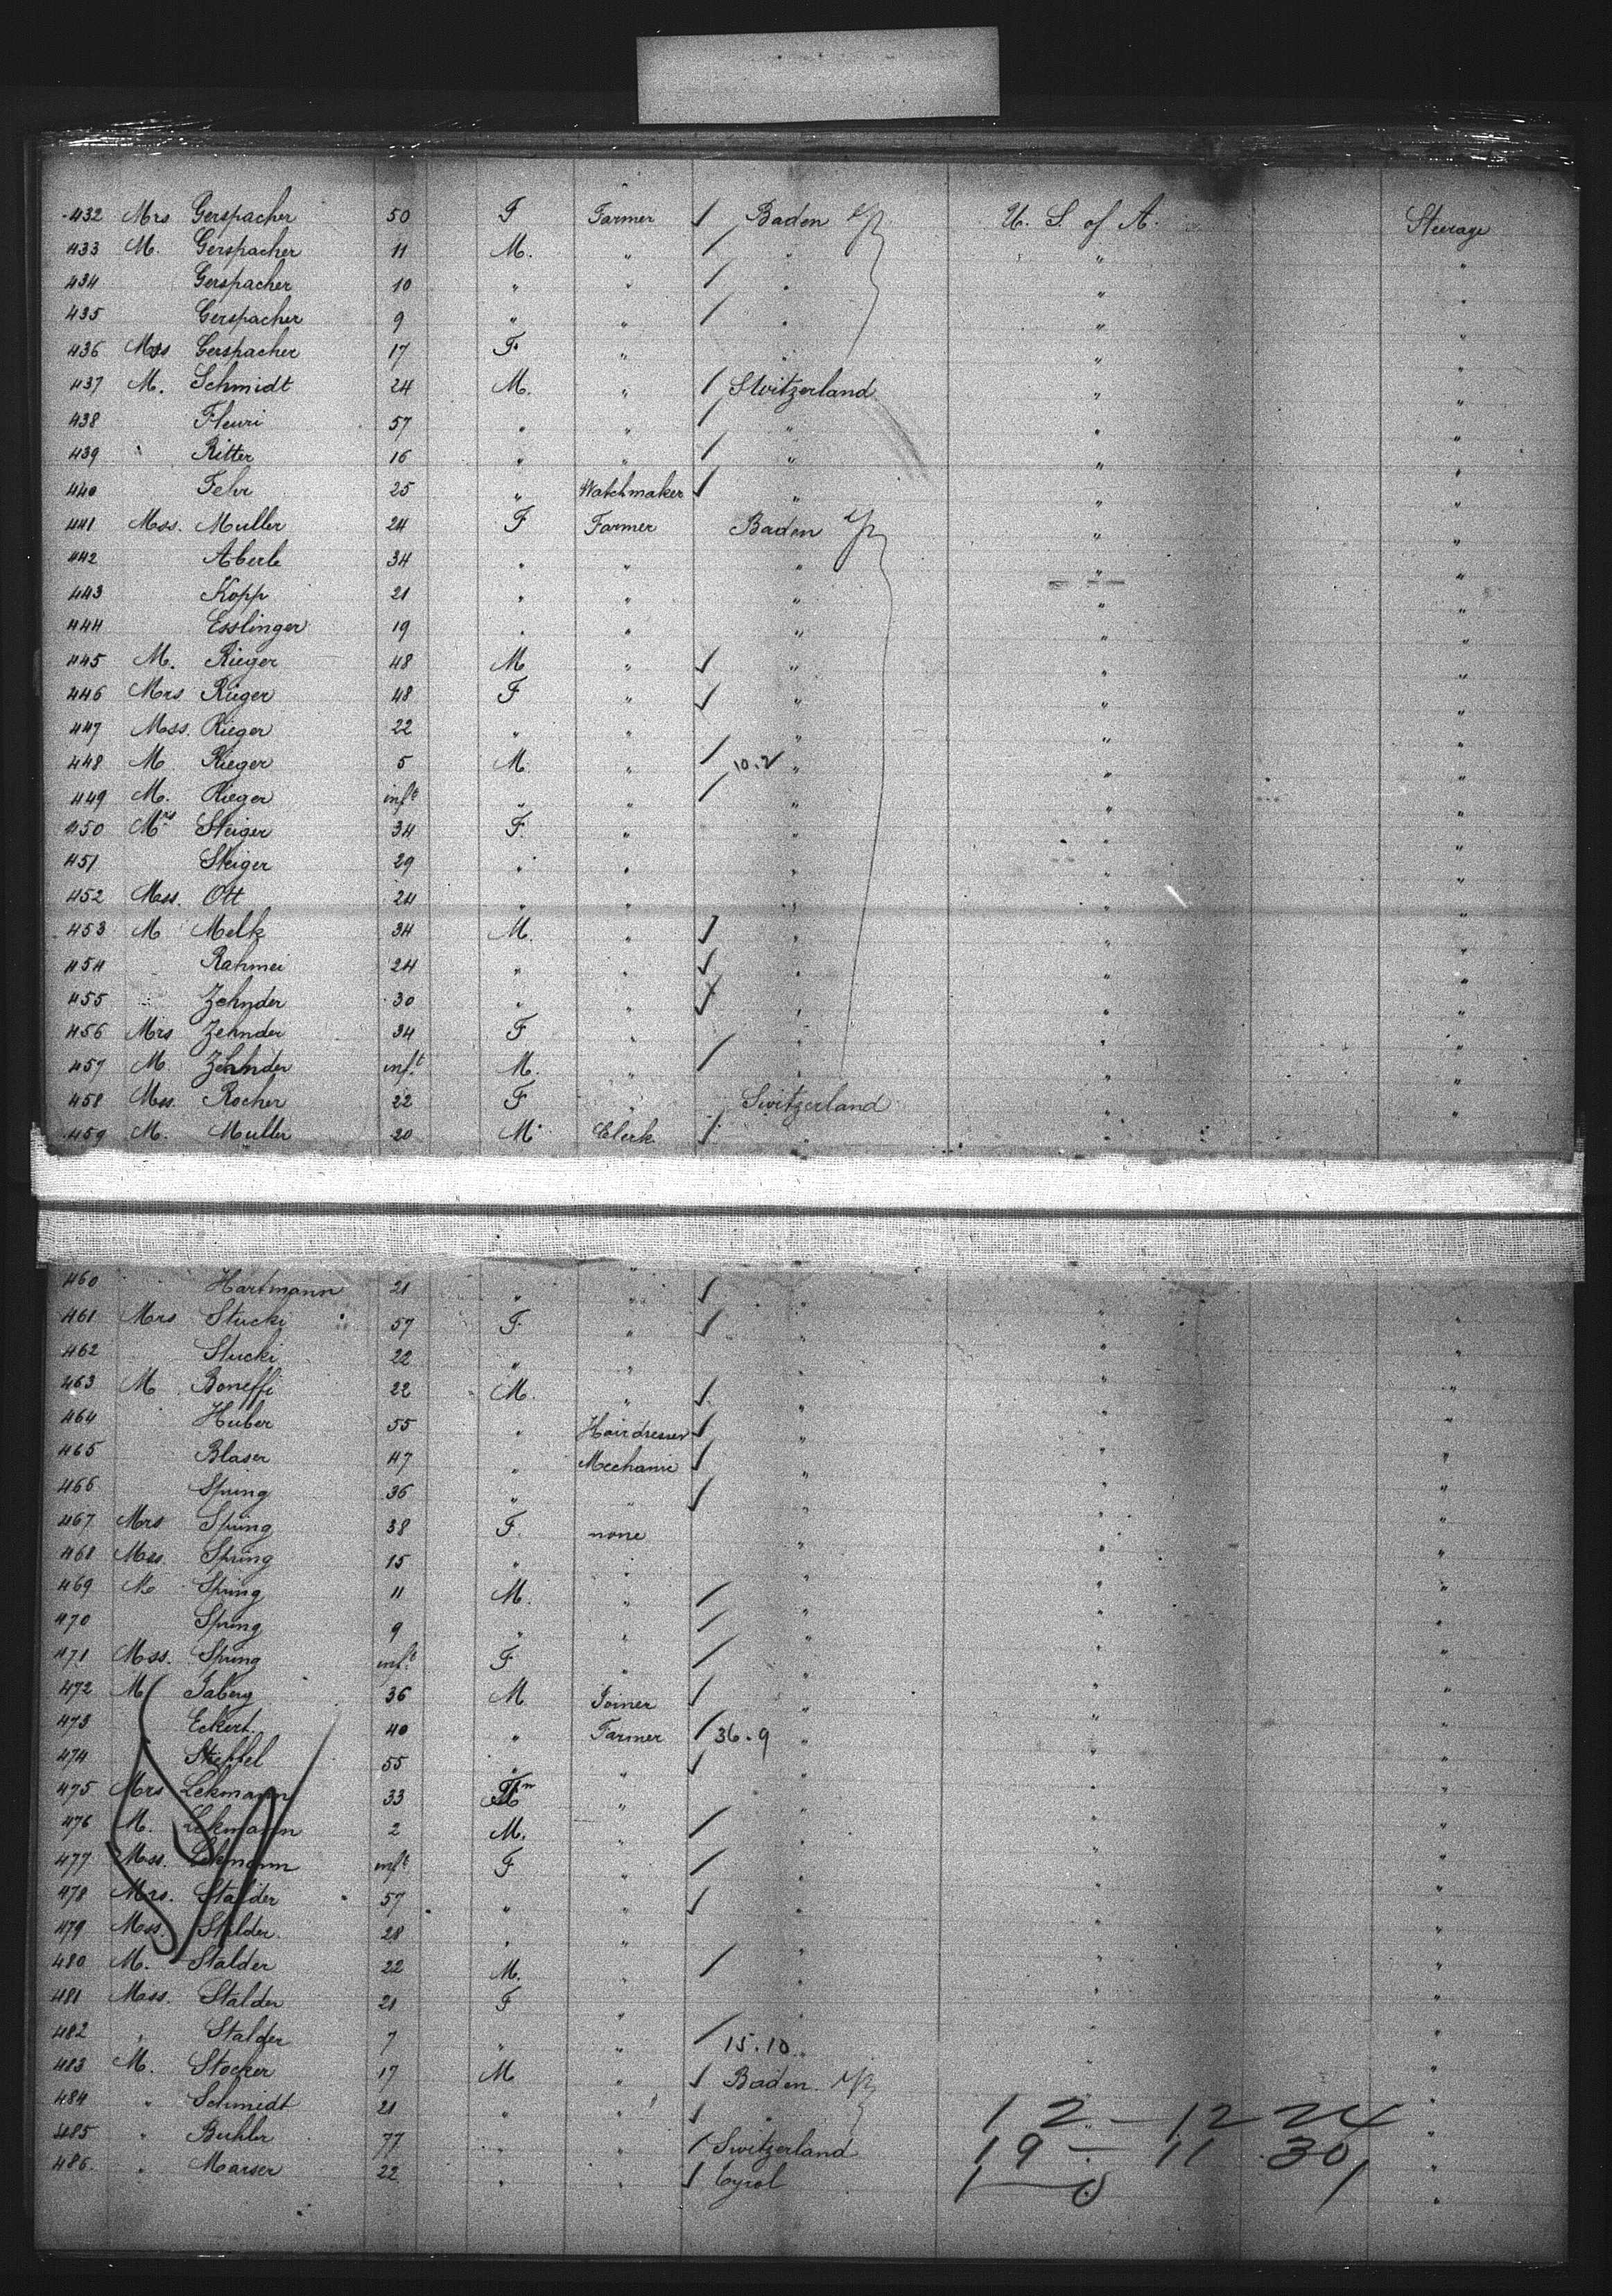 432 Mrs Gerspacher 50 F Farmer Baden U. S. of A. Steerage
433 M. Gerspacher 11 M. " " " "
434 Gerspacher 10 " " " " "
435 Gerspacher 9 " " " " "
436 Mss Gerspacher 17 F. " " " "
437 M. Schmidt 24 M. " Switzerland " "
438 Fleuri 57 " " " " "
439 " Ritter 16 " " " " "
440 Fehr 25 " Watchmaker " " "
441 Mss. Muller 24 F Farmer Baden " "
442 Aberle 34 " " " " "
443 Kopp 21 " " " " "
444 Esslinger 19 " " " " "
445 M. Rieger 48 M " " " "
446 Mrs Rieger 48 F " " " "
447 Mss. Rieger 22 " " " " "
448 M. Rieger 5 M " 10.2 " " "
449 M. Rieger inft " " " " "
450 Mrs Steiger 34 F. " " " "
451 Steiger 29 " " " " "
452 Mss. Ott 24 " " " " "
453 M Melk 34 M. " " " "
454 " Rahmei 24 " " " " "
455 " Zehnder 30 " " " " "
456 Mrs Zehnder 34 F " " " "
457 M. Zehnder inft M. " " " "
458 Mss. Rocher 22 F " Switzerland " "
459 M. Muller 20 M Clerk " " "
460 " Hartmann 21 " " " " "
461 Mrs Stucki 57 F " " " "
462 Stucki 22 " " " " "
463 M Boneffi 22 M. " " " "
464 Huber 55 " Hairdresser " " "
465 Blaser 47 " Mechanic " " "
466 Spring 36 " " " " "
467 Mrs Spring 38 F. none " " "
468 Mss. Spring 15 " " " " "
469 M. Spring 11 M. " " " "
470 Spring 9 " " " " "
471 Mss. Spring inft F " " " "
472 M Jaberg 36 M Joiner " " "
473 Eckert 40 " Farmer 36.9 " " "
474 55 " " " " "
475 Mrs Lekmann 33 " " " "
476 M. Lekmann 2 M. " " " "
477 Mss. Lekmann inft F " " " "
478 Mrs. Stalder 57 " " " " "
479 Mss. Stalder 28 " " " " "
480 M. Stalder 22 M. " " " "
481 Mss. Stalder 21 F " " " "
482 " Stalder 7 " " 15.10 " " "
483 M. Stocker 17 M " Baden " "
484 " Schmidt 21 " " " "
485 " Buhler 77 " " Switzerland "
486. " Marser 22 " " Tyrol "
12 - 12 24
19 - 11 30
1 - 0 1